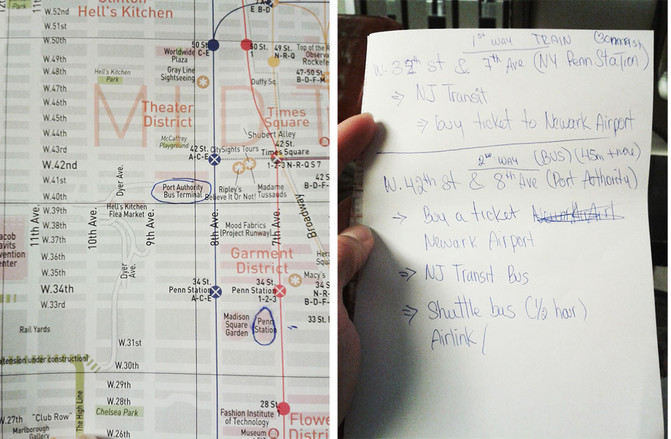 Clinton
Hell's Kitchen
W.52nd
W.51st
W.50th
W.49th
W.48th
W.47th
W.46th
W.45th
W.44th
W.43rd
W.42nd
W.41st
W.40th
W.39th
W.38th
W.37th
W.36th
W.35th
W.34th
W.33rd
W.31st
W.30th
W.29th
W.28th
W.27th
W.26th
7 Ave
B-D-E
50 St
Worldwide
Plaza
Gray Line
Sightseeing
49 St
N-R-Q
Top of the
Rockefe
47-50 St
B-D-F-M
Duffy Sq.
Hell's Kitchen
Park
MID
Theater
District
McCaffrey
Playground
Times
Square
Shubert Alley
42 St
A-C-E
CitySights Tours
42 St
Times Square
1-2-3 N-R-Q S 7
Port Authority
Bus Terminal
Ripley's
Believe It Or Not!
Madame
Tussauds
Dyer Ave.
Hell's Kitchen
Flea Market
11th Ave.
10th Ave.
9th Ave.
8th Ave.
7th Ave.
Broadway
Mood Fabrics
(Project Runway)
Garment
District
Dyer
Ave.
34 St
Penn Station
A-C-E
34 St
Penn Station
1-2-3
Macy's
34 St
N-R-Q
B-D-F-
Madison
Square
Garden
Penn
Station
33 St.
Rail Yards
extension under construction
The High Line
Chelsea Park
"Club Row"
Marlborough
Gallery
28 St
1
Fashion Institute
of Technology
Museum
Flowe
Distri
1st way TRAIN (30mins)
W. 32th st & 7th Ave (NY Penn Station)
⇒ NJ Transit
⇒ buy ticket to Newark Airport
2nd way (BUS) (45m
W. 42th st & 8th Ave (Port Authority)
⇒ Buy a ticket
Newark Airport
⇒ NJ Transit Bus
⇒ Shuttle bus (1/2 hour)
Airlink /